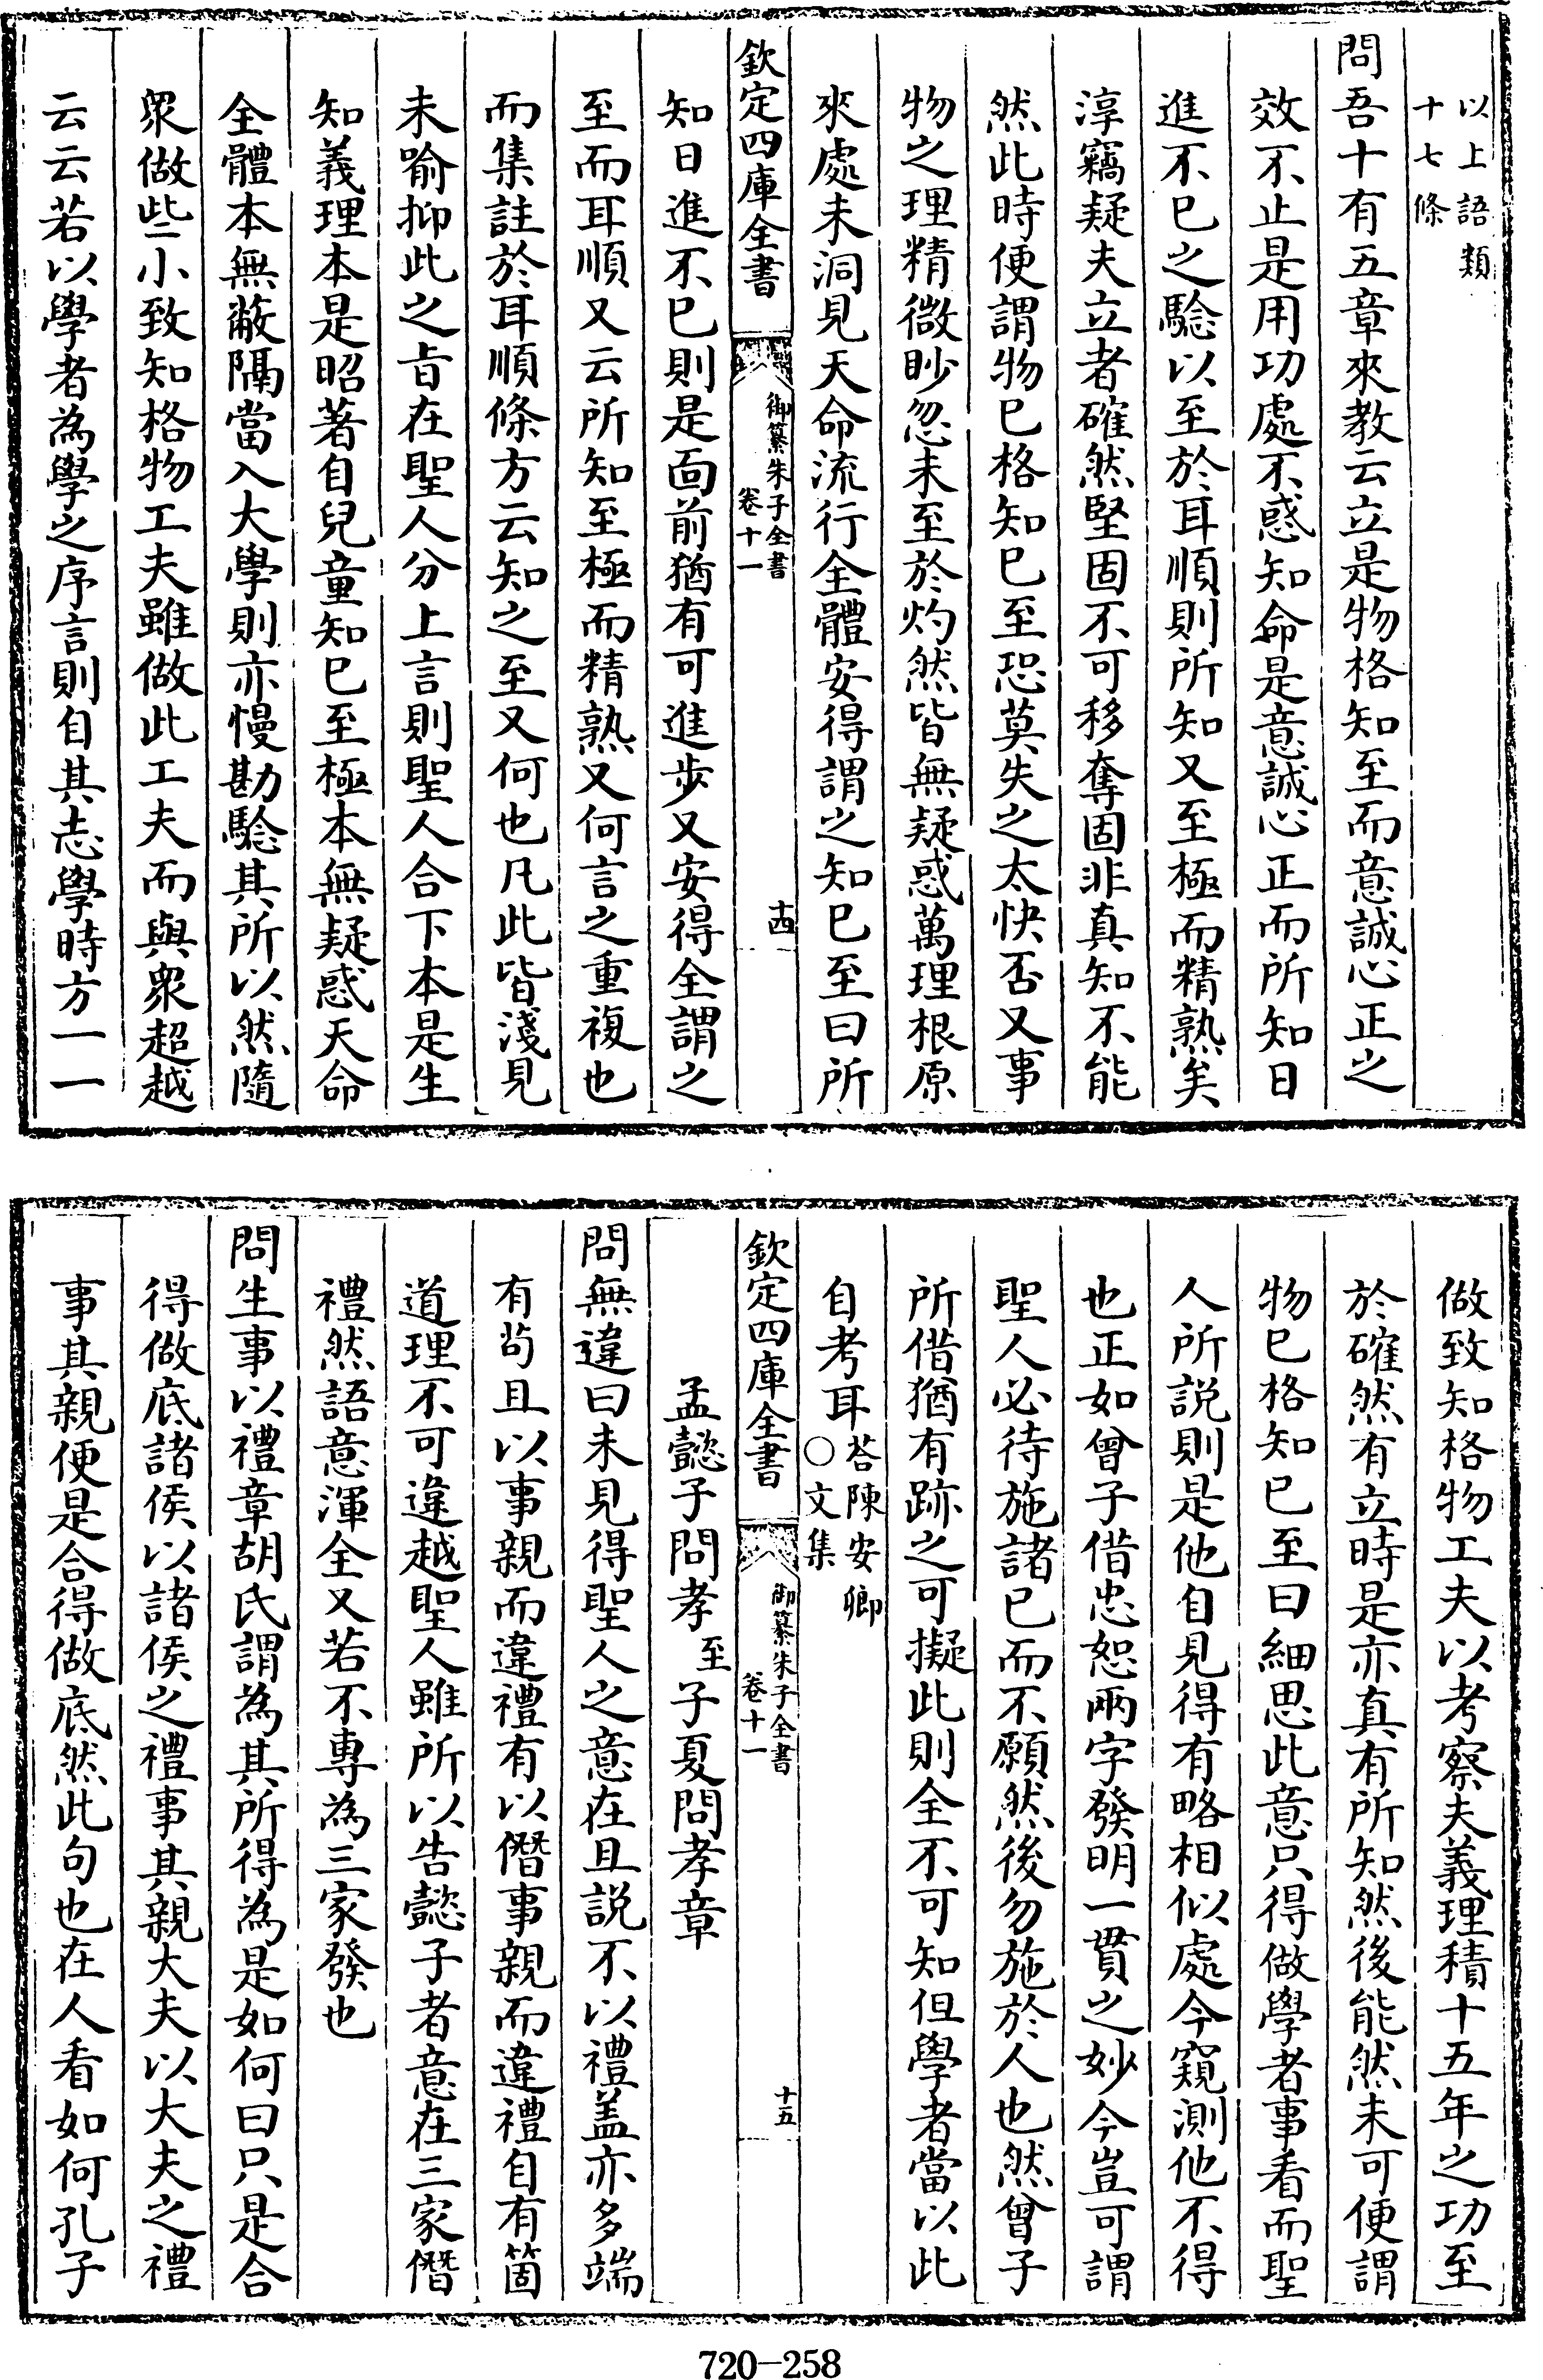 以上語類
十七條
問吾十有五章來教云立是物格知至而意誠心正之
效不止是用功處不惑知命是意誠心正而所知日
進不已之驗以至於耳順則所知又至極而精熟矣
淳竊疑夫立者確然堅固不可移奪固非真知不能
然此時便謂物已格知已至恐莫失之太快否又事
物之理精微眇忽未至於灼然皆無疑惑萬理根原
來處未洞見天命流行全體安得謂之知已至曰所
欽定四庫全書
御纂朱子全書
卷十一
十四
知日進不已則是面前猶有可進步又安得全謂之
至而耳順又云所知至極而精熟又何言之重複也
而集註於耳順條方云知之至又何也凡此皆淺見
未喻抑此之旨在聖人分上言則聖人合下本是生
知義理本是昭著自兒童知已至極本無疑惑天命
全體本無蔽隔當入大學則亦慢勘驗其所以然隨
衆做些小致知格物工夫雖做此工夫而與衆超越
云云若以學者為學之序言則自其志學時方一一
做致知格物工夫以考察夫義理積十五年之功至
於確然有立時是亦真有所知然後能然未可便謂
物已格知已至曰細思此意只得做學者事看而聖
人所說則是他自見得有略相似處今窺測他不得
也正如曾子借忠恕兩字發明一貫之妙今豈可謂
聖人必待施諸已而不願然後勿施於人也然曾子
所借猶有跡之可擬此則全不可知但學者當以此
自考耳
荅陳安卿
○文集
欽定四庫全書
御纂朱子全書
卷十一
十五
孟懿子問孝至子夏問孝章
問無違曰未見得聖人之意在且説不以禮盖亦多端
有茍且以事親而違禮有以僭事親而違禮自有箇
道理不可違越聖人雖所以告懿子者意在三家僭
禮然語意渾全又若不專為三家發也
問生事以禮章胡氏謂為其所得為是如何曰只是合
得做底諸侯以諸侯之禮事其親大夫以大夫之禮
事其親便是合得做底然此句也在人看如何孔子
720-258